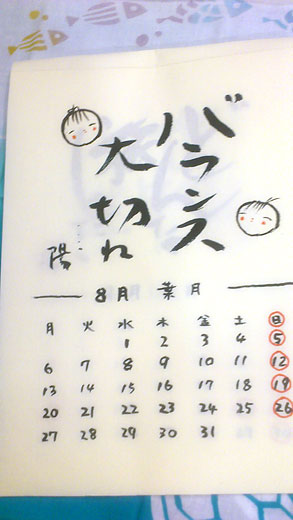 バランス
大切れ
陽
8月 葉月
月 火 水 木 金 土 日
1 2 3 4 5
6 7 8 9 10 11 12
13 14 15 16 17 18 19
20 21 22 23 24 25 26
27 28 29 30 31